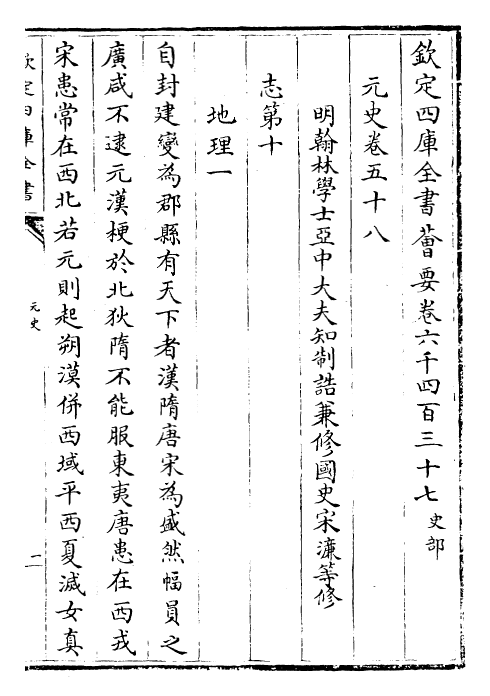 欽定四庫全書薈要卷六千四百三十七 史部
元史卷五十八
明翰林學士亞中大夫知制誥兼修國史宋濂等修
志第十
地理一
自封建變為郡縣有天下者漢隋唐宋為盛然幅員之
廣咸不逮元漢梗於北狄隋不能服東夷唐患在西戎
宋患常在西北若元則起朔漠併西域平西夏滅女真
欽定四庫全書
元史
二